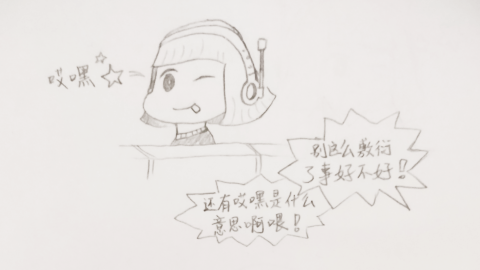 哎嘿
别这么敷衍
了事好不好!
还有哎嘿是什么
意思啊喂!